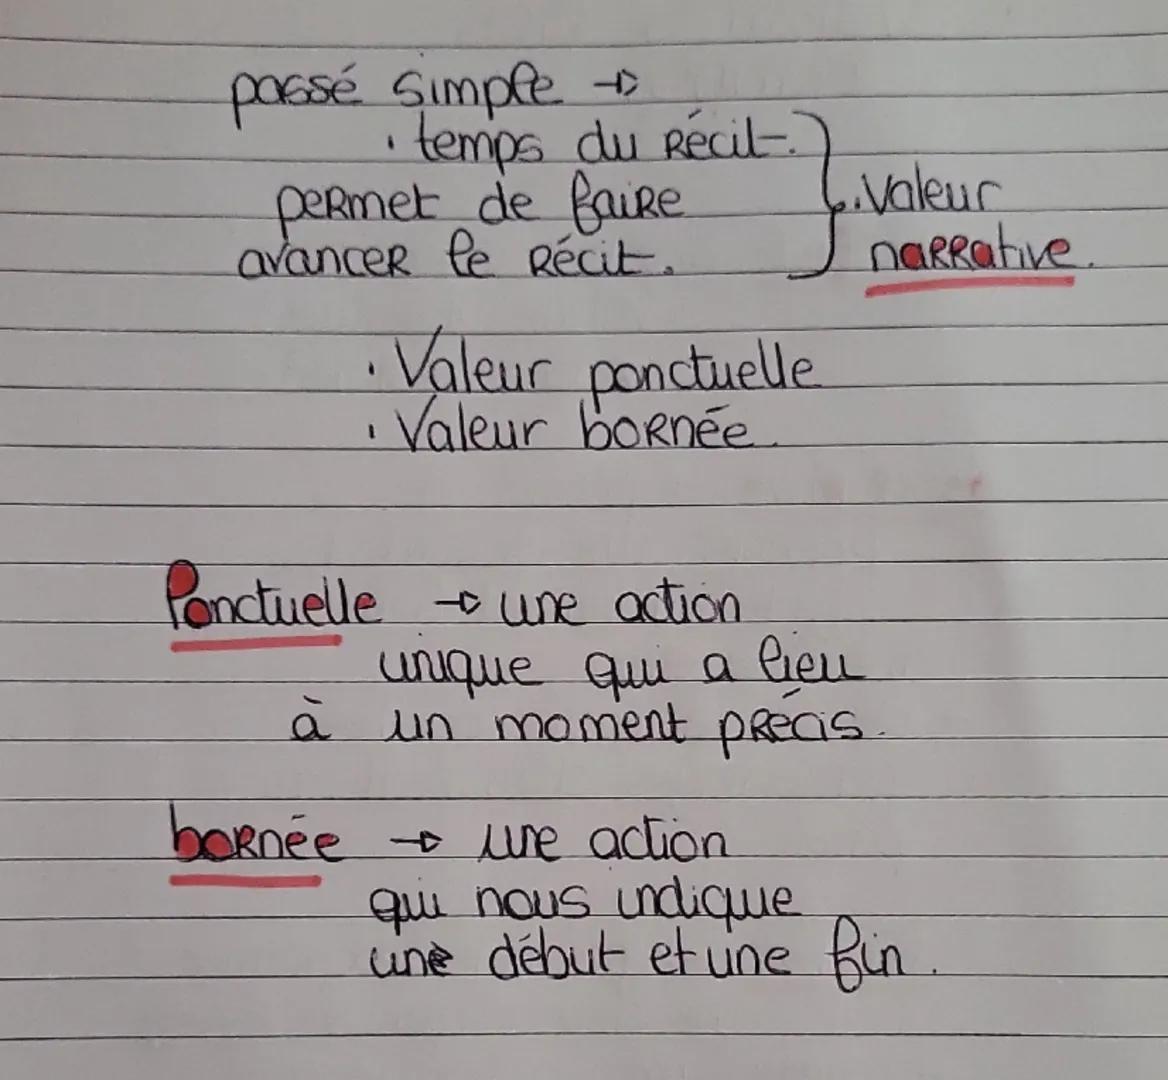 passé simple →
· temps du récit.
permet de faire
avancer le récit.
· Valeur
narrative.
· Valeur ponctuelle
· Valeur bornée.
Ponctuelle → une action
unique qui a lieu
à un moment précis.
bornée → une action
qui nous indique
une début et une fin.